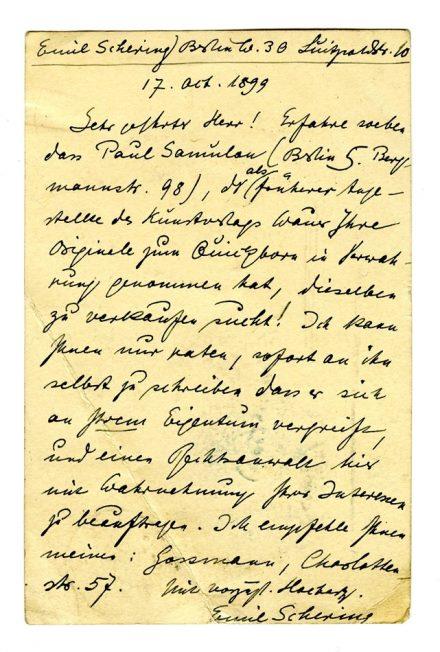 Emil Schering, Berlin W. 30 Luitpoldstr. 10
17. Oct. 1899
Sehr geehrter Herr! Erfahre soeben
dass Paul Samulon (Berlin S. Berg-
mannstr. 98), der als früherer Ange-
stellte des Kunstverlags Ihre
Originale zum Quickborn in Verwah-
rung genommen hat, dieselben
zu verkaufen sucht! Ich kann
Ihnen nur raten, sofort an ihn
selbst zu schreiben dass er sich
an Ihrem Eigentum vergreift,
und einen Rechtsanwalt hier
mit Wahrnehmung Ihrer Interessen
zu beauftragen. Ich empfehle Ihnen
meinen: Gossmann, Charlotten
str. 57. Mit vorzügl. Hochacht.
Emil Schering